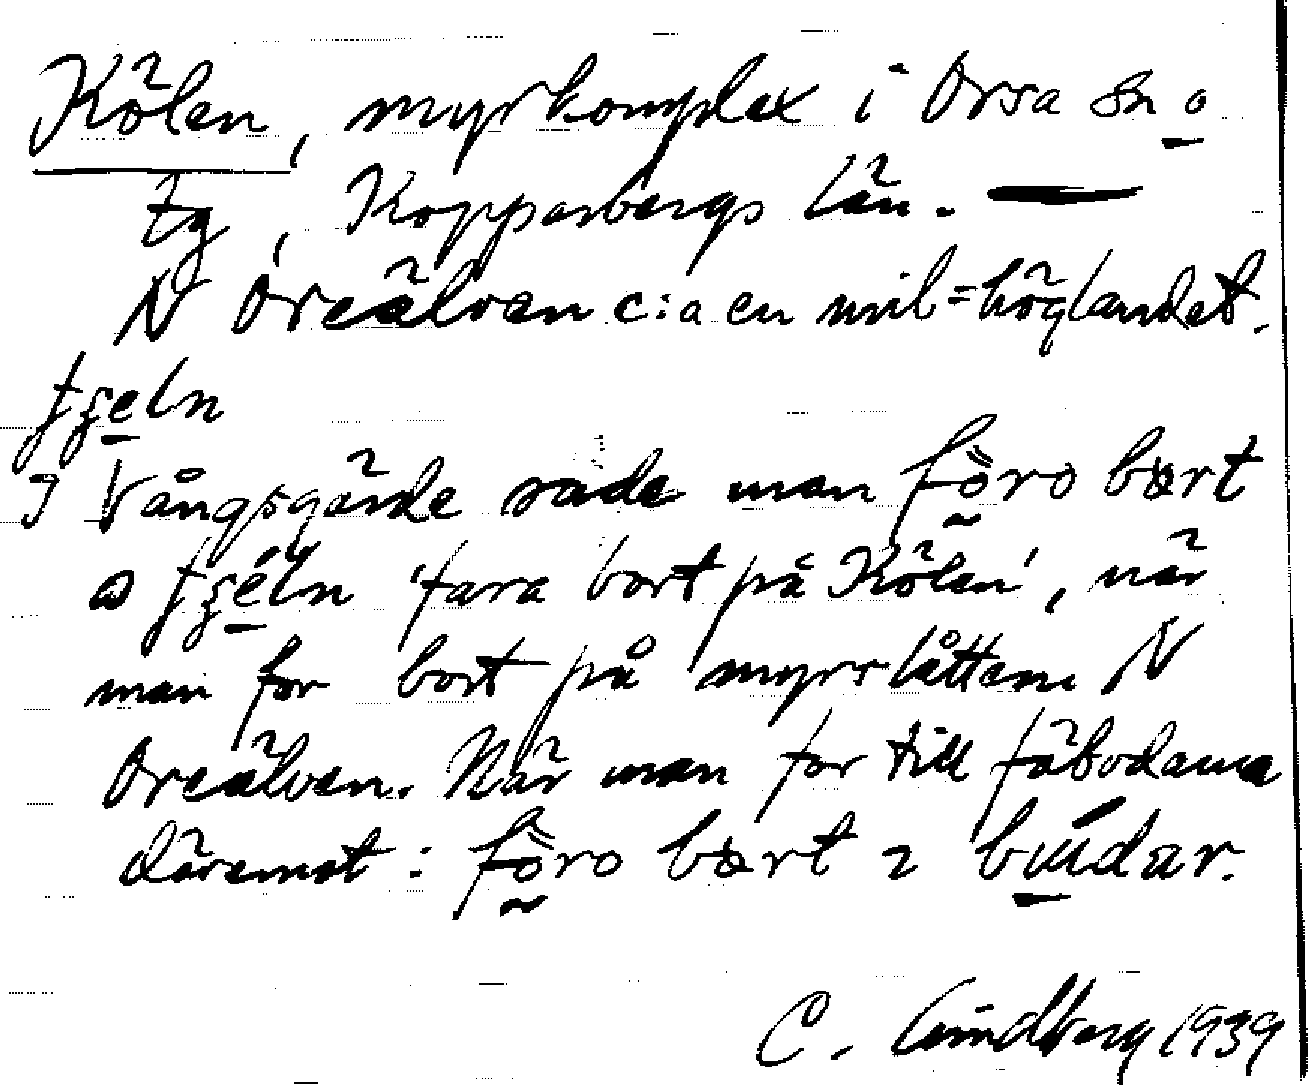 Kölen, myrkomplex i Orsa sn o
tg, Kopparbergs län. —
N Oreälven c:a en mil = höglandet.
tʃeln
I Vångsgärde sade man föro bort
a tʃéln 'fara bort på Kölen', när
man for bort på myrslåttern N
Oreälven. När man for till fäbodarna
däremot: föro bort 2 búdar.
C. Lindberg 1939